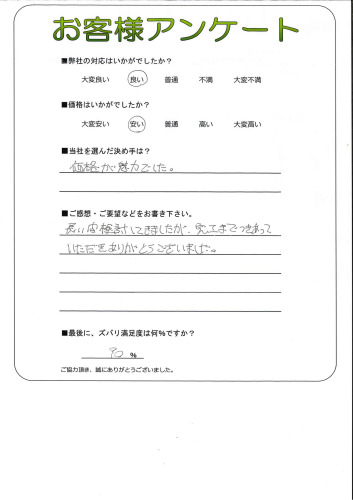 お客様アンケート
■弊社の対応はいかがでしたか?
大変良い 良い 普通 不満 大変不満
■価格はいかがでしたか?
大変安い 安い 普通 高い 大変高い
■当社を選んだ決め手は?
価格が魅力でした。
■ご感想・ご要望などをお書き下さい。
長い間検討してきましたが、完工までつきあって
いただきありがとうございました。
■最後に、ズバリ満足度は何%ですか?
90 %
ご協力頂き、誠にありがとうございました。